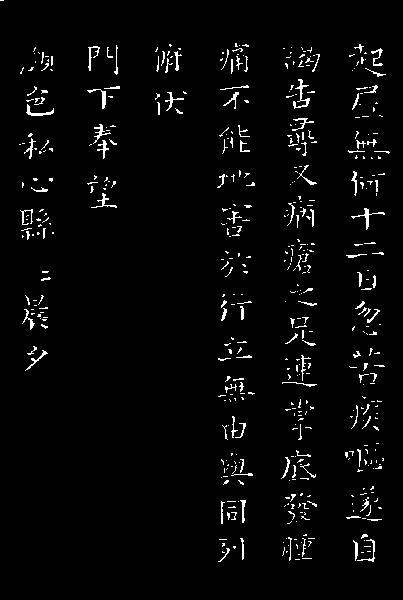 起居無何十二日忽苦痰嘔遂自
謁告尋又病瘡之足連掌底發腫
痛不能地害於行立無由與同列
俯伏
門下奉望
顏色私心縣〻晨夕